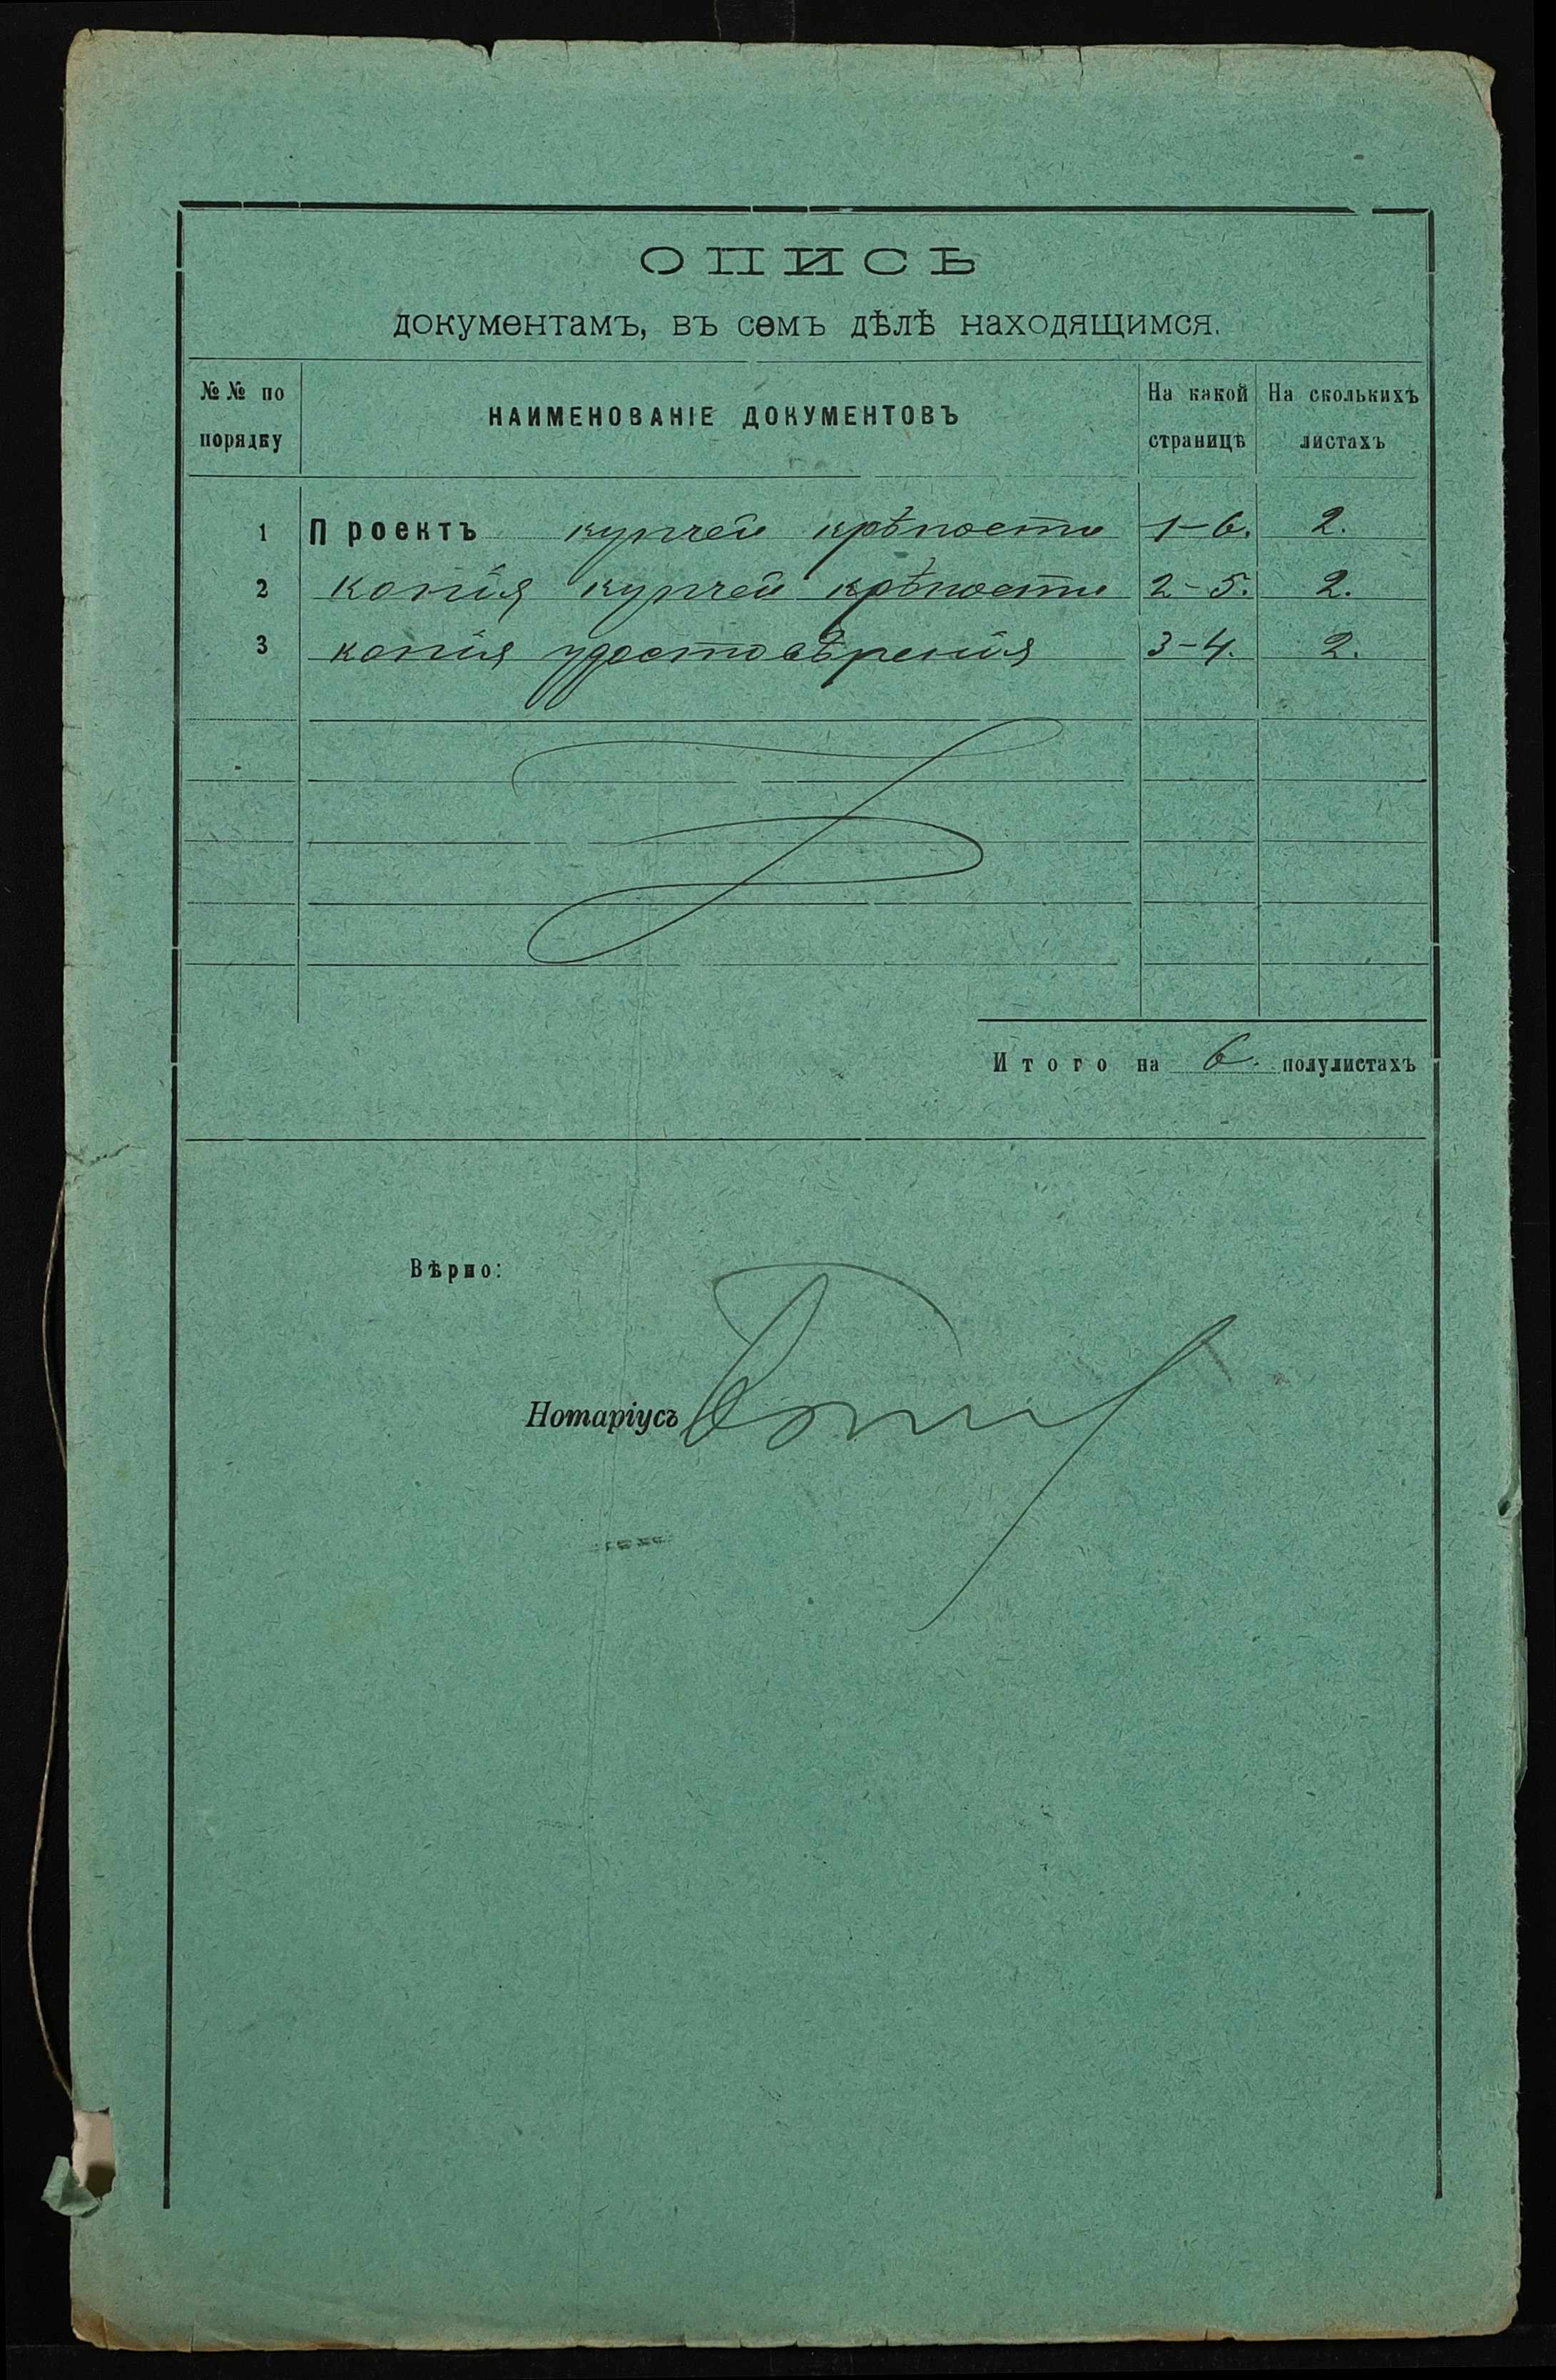 ОПИСЬ
документамъ, въ семъ дѣлѣ находящимся.
№№ по порядку
НАИМЕНОВАНІЕ ДОКУМЕНТОВЪ
На какой страницѣ
На сколькихъ листахъ
1 Проектъ купчей крѣпости 1-6. 2.
2 копія купчей крѣпости 2-5. 2.
3 копія удостовѣренія 3-4. 2.
Итого на 6. полулистахъ
Вѣрно:
Нотаріусъ